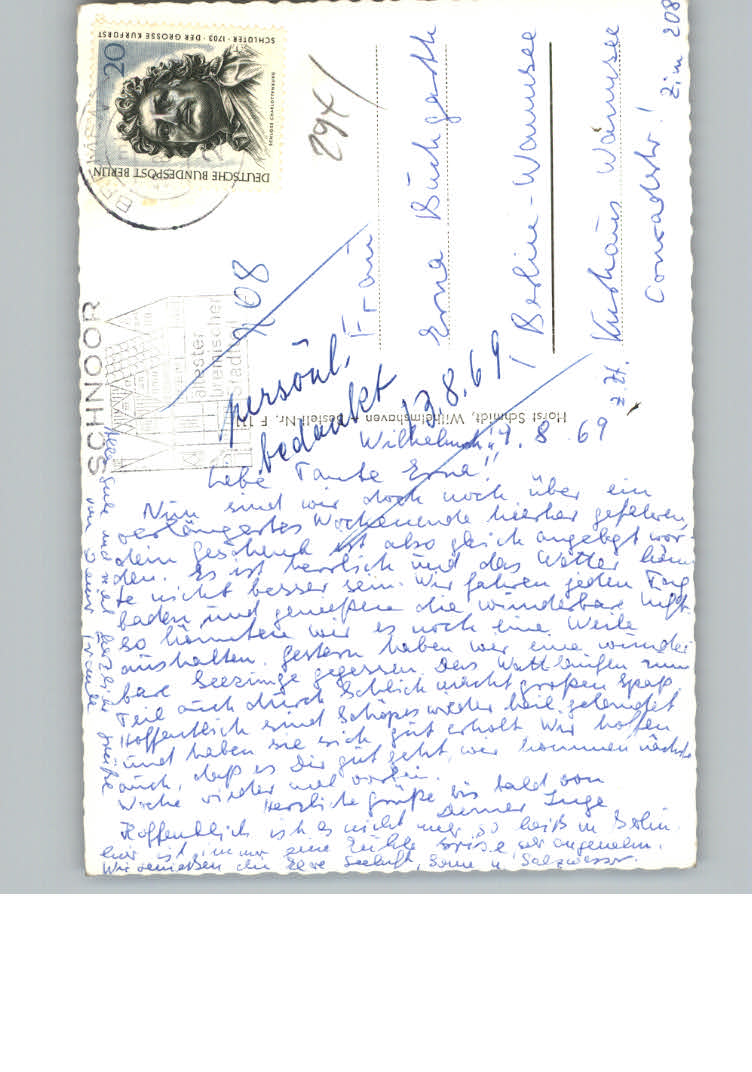 DEUTSCHE BUNDESPOST BERLIN
20
SCHLÜTER · 1703 · DER GROSSE KURFÜRST
SCHLOSS CHARLOTTENBURG
294/
SCHNOOR
ältester
bremischer
Stadtteil
08
persönl.!
bedankt
13.8.69
Frau
Erna Buchgarth
1 Berlin-Wannsee
z.Zt. Kurhaus Wannsee
Conradstr.! Zim 208
Horst Schmidt, Wilhelmshaven Bestell-Nr. F
Wilhelmsh. 9.8.69
Liebe Tante Erna!
Nun sind wir doch noch über ein
verlängertes Wochenende hierher gefahren,
dein Geschenk ist also gleich angelegt wor-
den. Es ist herrlich und das Wetter könn
te nicht besser sein. Wir fahren jeden Tag
baden und genießen die wunderbare Luft.
So könnten wir es noch eine Weile
aushalten. Gestern haben wir eine wunder
bare Seezunge gegessen. Das Wattlaufen zum
Teil auch durch Schlick macht großen Spaß.
Hoffentlich sind Schöpes wieder heil gelandet
und haben sie sich gut erholt. Wir hoffen
auch, daß es Dir gut geht, wir kommen nächste
Woche wieder mal vorbei.
Herzliche Grüße bis bald von
Deiner Inge
Hoffentlich ist es nicht mehr so heiß in Berlin.
hier ist immer eine kühle Brise, sehr angenehm.
Wir genießen die Seeluft, Sonne u. Salzwasser.
Alles Gute und herzliche Grüße
von Deiner